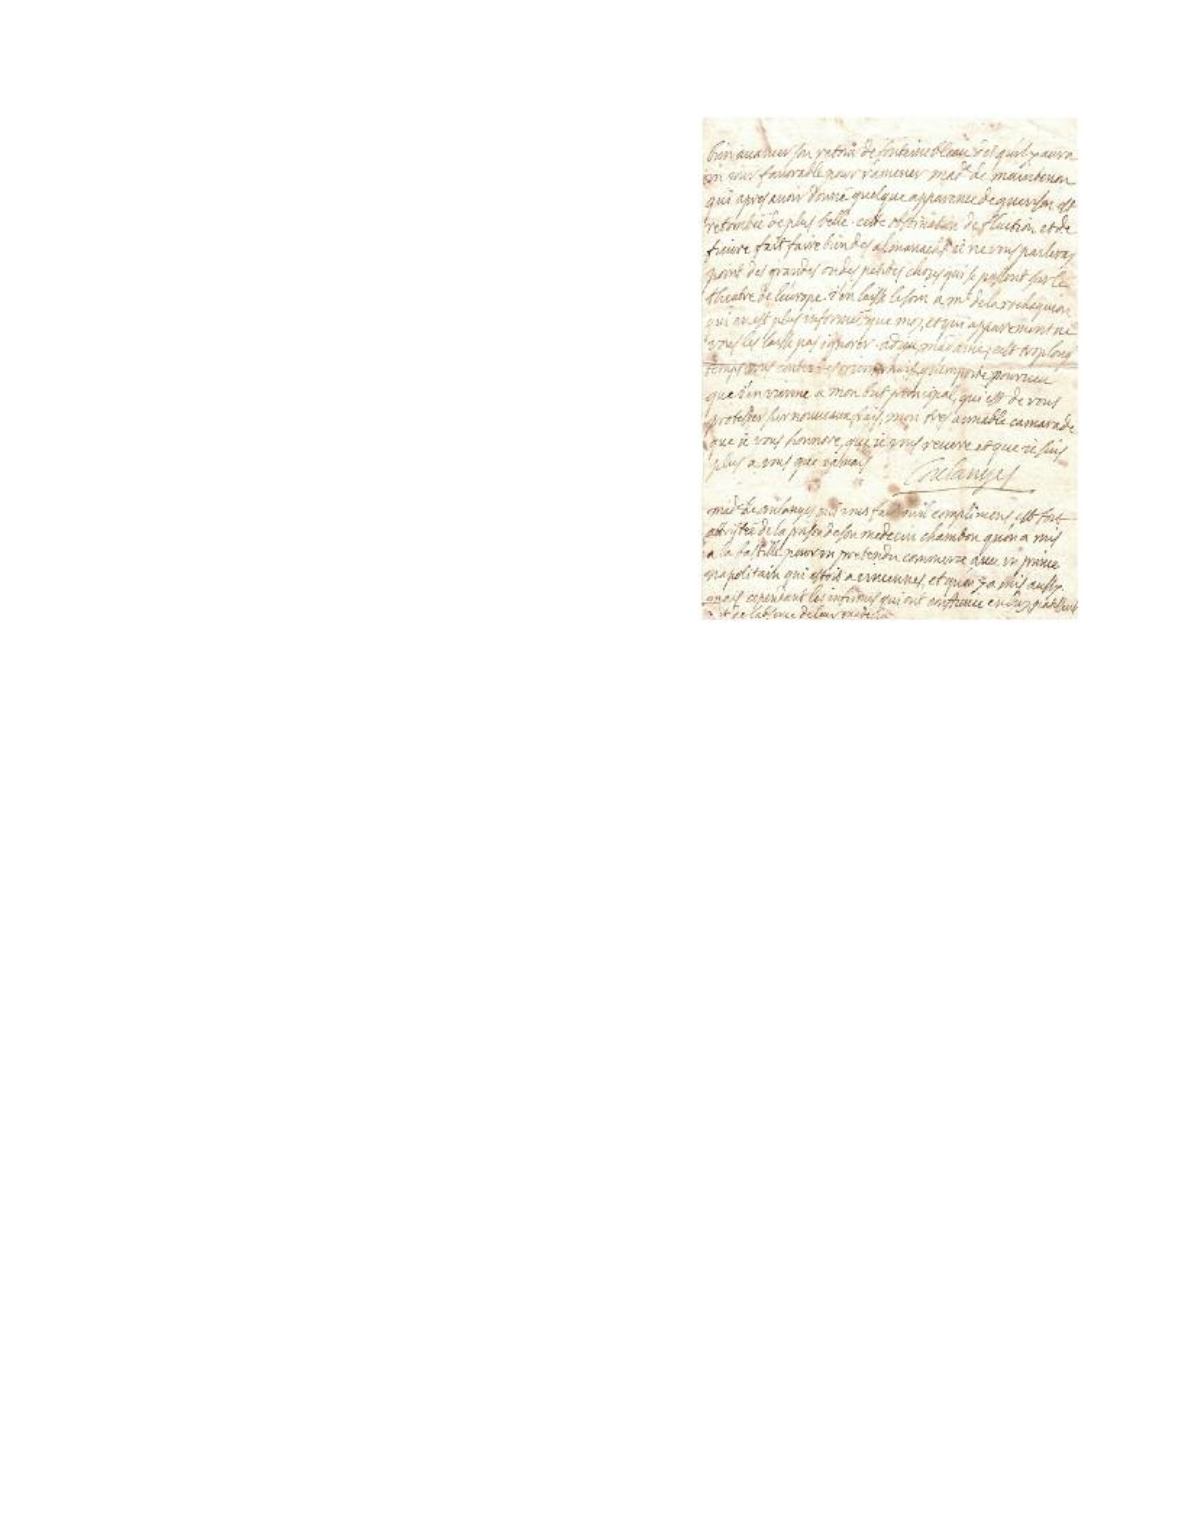 bien avancer son retour de fontainebleau et quil y aura
un jour favorable pour ramener mad.e de maintenon
qui apres avoir donné quelque apparence de guerison est
retombée de plus belle cette obstination de fluction et de
fieure fait faire bien des almanachs je ne vous parleray
point des grandes ou des petites choses qui se passent sur le
theatre de leurope j'en laisse le soin a mr de la
qui en est plus informé que moy, et qui apparement ne
vous les laisse pas ignorer adieu madame, cest trop long
temps vous conter des quimporte pourveu
que j'en vienne a mon but principal, qui est de vous
protester sur nouveaux frais, mon tres aimable camarade
que je vous honnore, que je vous revere et que je suis
plus a vous que jamais
Coulanges
mad.e de coulanges qui vous fait mil complimens est fort
attristée de la prison de son medecin chambon quon a mis
a la bastille pour un pretendu commerce avec un prince
napolitain qui estoit a vincennes, et quon y a mis aussy
mais cependant les infirmes qui ont confience en luy patissent
et de labsence de leur medecin